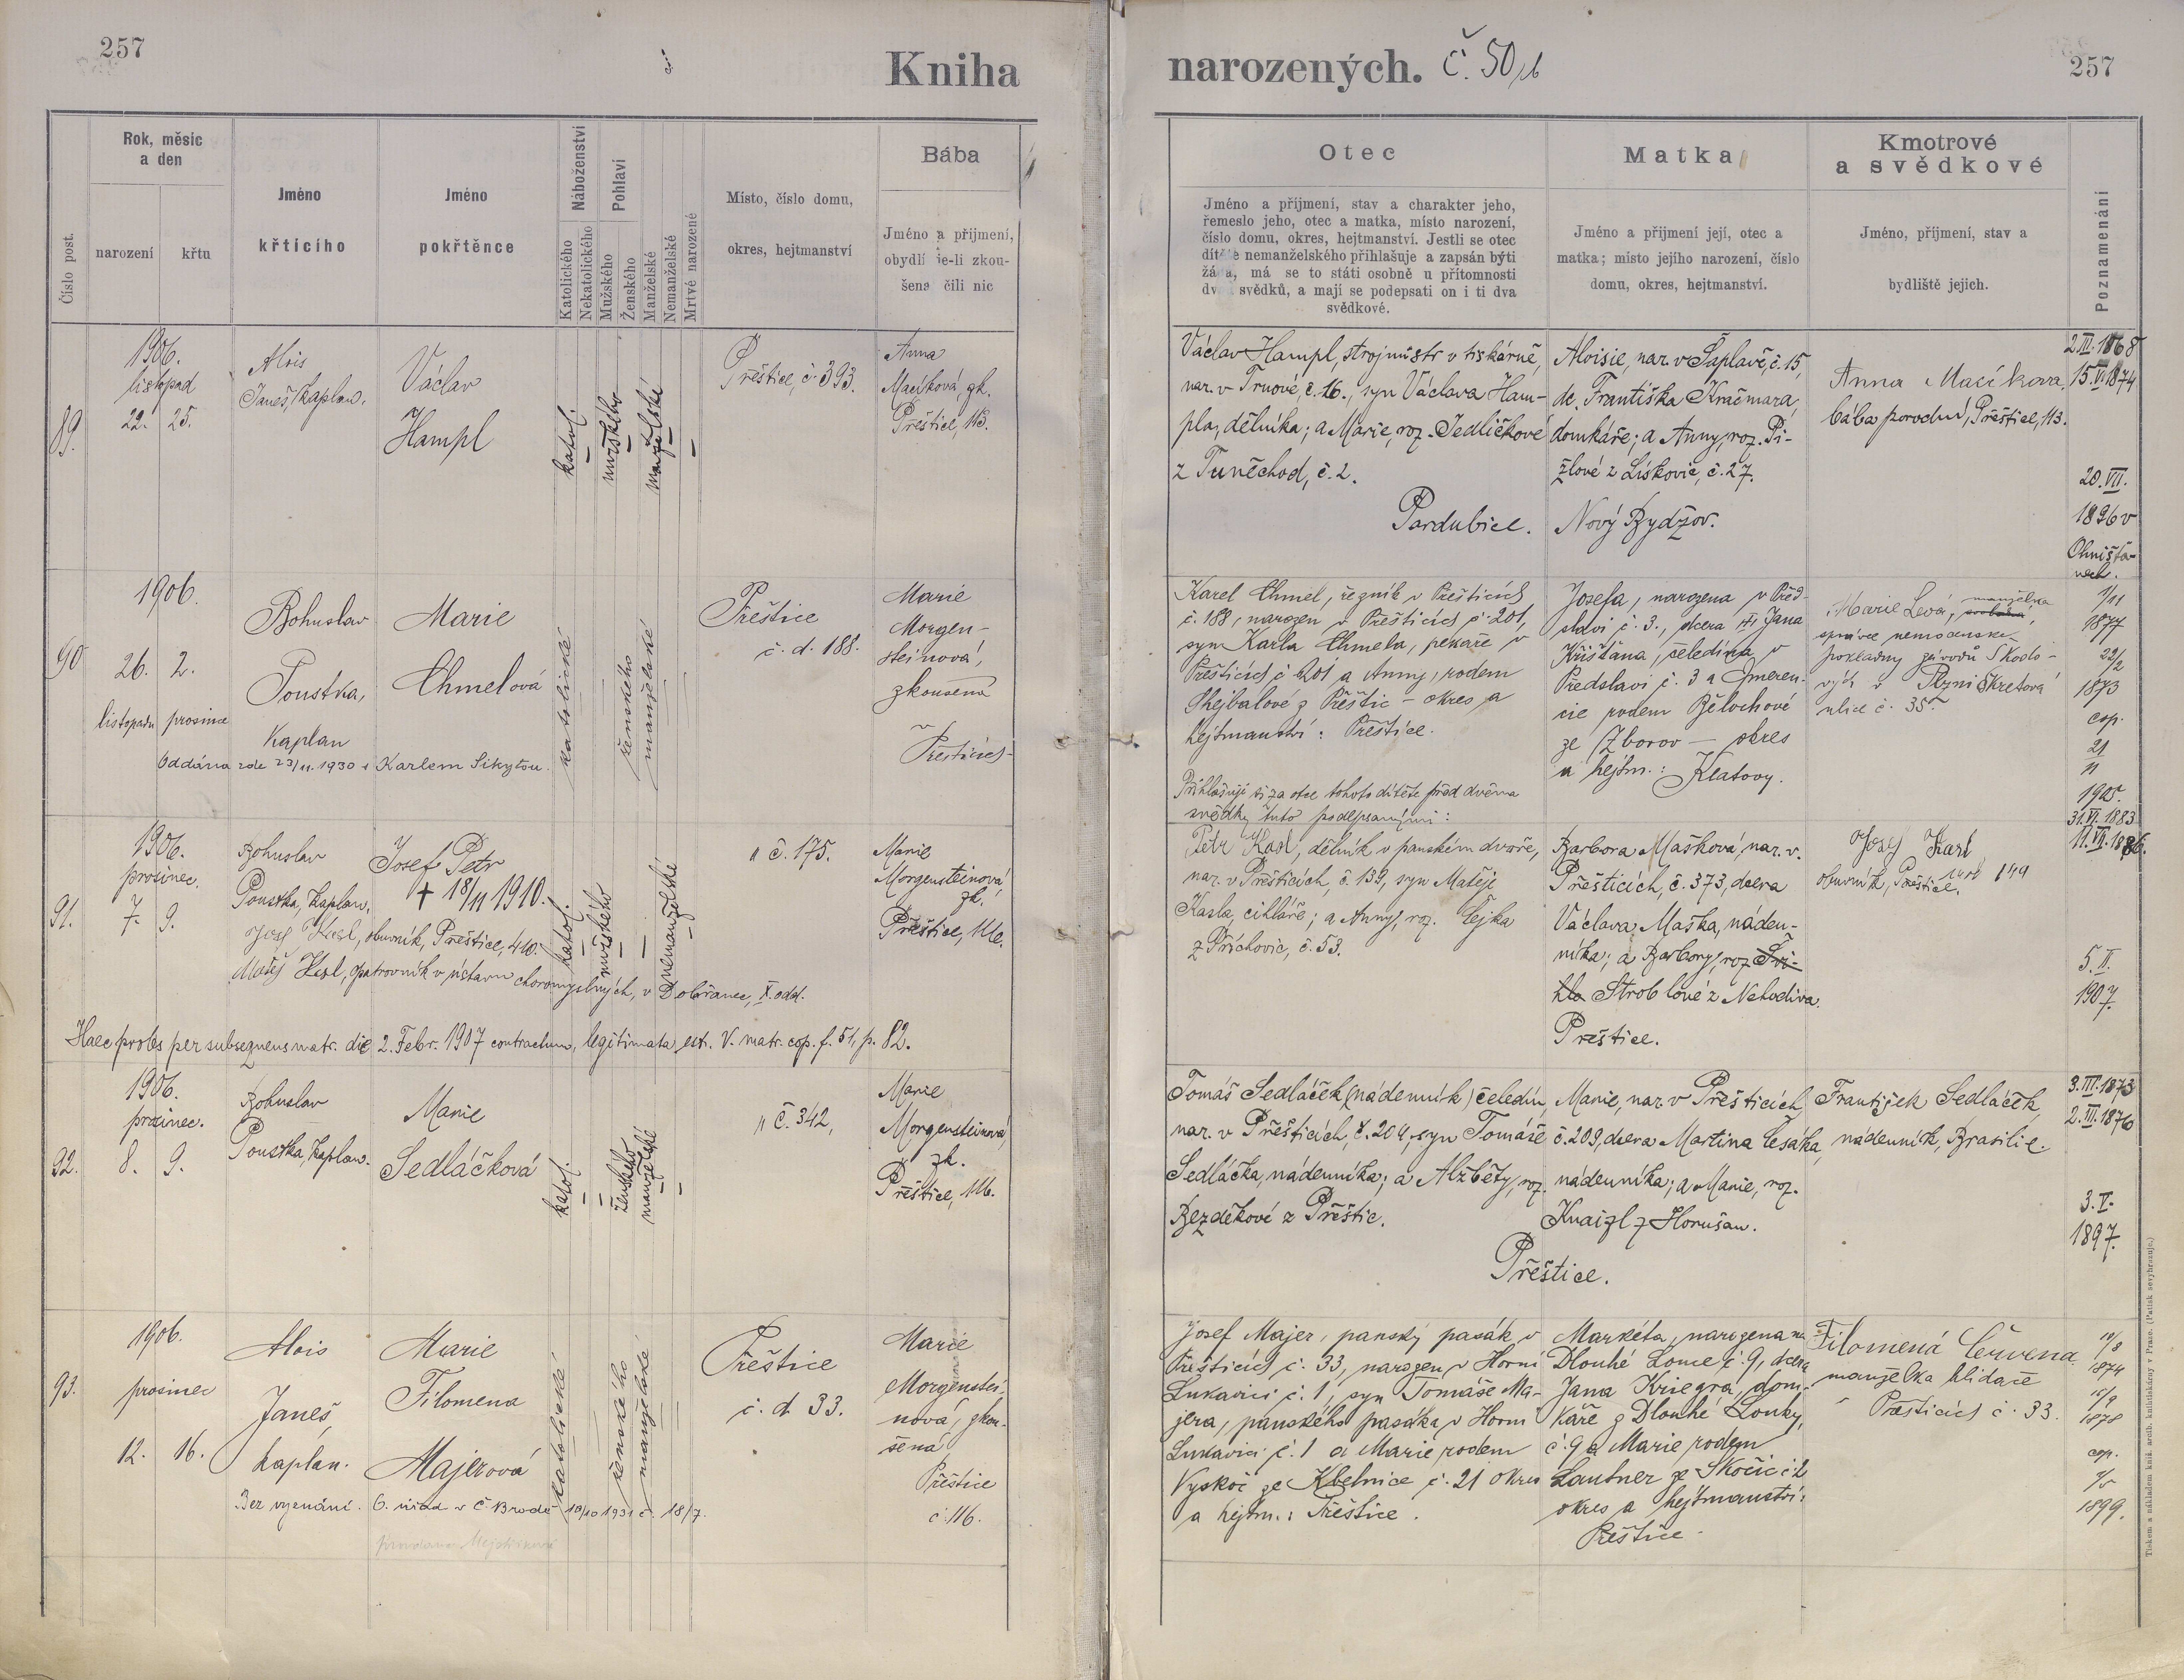 257
Kniha
Číslo post.
Rok, měsíc
a den
narození
křtu
Jméno
křtícího
Jméno
pokřtěnce
Náboženství
Katolického
Nekatolického
Pohlaví
Mužského
Ženského
Manželské
Nemanželské
Mrtvé narozené
Místo, číslo domu,
okres, hejtmanství
Bába
Jméno a přijmení,
obydlí je-li zkou-
šena čili nic
89.
1906.
listopad
22. 25.
Alois
Janeš, kaplan.
Václav
Hampl
katol.
mužského
manželské
Přeštice, č. 393.
Anna
Macíková, zk.
Přeštice, 113.
90
1906.
26. 2.
listopadu prosince
Bohuslav
Poustka,
Kaplan
Marie
Chmelová
Oddána zde 23/11. 1930 s Karlem Sikytou.
katolické
ženského
manželské
Přeštice
č. d. 188.
Marie
Morgen-
steinová,
zkoušená
v
Přešticích
91.
1906.
prosinec.
7. 9.
Bohuslav
Poustka, kaplan.
Josef Petr
† 18/11 1910.
katol.
mužského
nemanželské
" č. 175.
Marie
Morgensteinová,
zk.
Přeštice, 116.
Josef Kesl, obuvník, Přeštice, 410.
Matěj Kesl, opatrovník v ústavu choromyslných, v Dobřanec, X. odd.
Haec proles per subsequens matr. die 2. Febr. 1907 contractum, legitimata est. V. matr. cop. f. 51, p. 82.
92.
1906.
prosinec.
8. 9.
Bohuslav
Poustka, kaplan.
Marie
Sedláčková
katol.
ženského
manželské
" č. 342,
Marie
Morgensteinová,
zk.
Přeštice, 116.
93.
1906.
prosinec
12. 16.
Alois
Janeš,
kaplan.
Marie
Filomena
Majerová
katolické
ženského
manželské
Přeštice
č. d. 33.
Marie
Morgenstei-
nová, zkou-
šená
Přeštice
č. 116.
Bez vyznání. O. úřad v Č. Brodě 10/10 1931 č. 18/7.
narozených. č. 50/b
257
Otec
Jméno a příjmení, stav a charakter jeho,
řemeslo jeho, otec a matka, místo narození,
číslo domu, okres, hejtmanství. Jestli se otec
dítěte nemanželského přihlašuje a zapsán býti
žádá, má se to státi osobně u přítomnosti
dvou svědků, a mají se podepsati on i ti dva
svědkové.
Matka
Jméno a příjmení její, otec a
matka; místo jejího narození, číslo
domu, okres, hejtmanství.
Kmotrové
a svědkové
Jméno, příjmení, stav a
bydliště jejich.
Poznamenání
Václav Hampl, strojmistr v tiskárně,
nar. v Trnové, č. 16., syn Václava Ham-
pla, dělníka; a Marie, roz. Jedličkové
z Tuněchod, č. 2.
Pardubice.
Aloisie, nar. v Šaplavě, č. 15,
dc. Františka Kračmara,
domkáře; a Anny, roz. Pi-
žlové z Lískovic, č. 27.
Nový Bydžov.
Anna Macíkova,
bába porodní, Přeštice, 113.
2. III. 1868
15. VI. 1874
20. VII.
1896 v
Ohništa-
nech.
Karel Chmel, řezník v Přešticích
č. 188, narozen v Přešticích č. 201,
syn Karla Chmela, pekaře v
Přešticích č. 201 a Anny, rodem
Shejbalové z Přeštic – okres a
hejtmanství: Přeštice.
Josefa, narozena v Před-
slavi č. 3., dcera Jana
Krištana, čeledína v
Předslavi č. 3 a Jmeren-
cie rodem Bělochové
ze Zborov – okres
a hejtm.: Klatovy.
Marie Levá, manželka
správce nemocenské
pokladny závodů Škodo-
vých v Plzni Škretova
ulice č. 35.
1/11
1877
22/2
1873
cop.
21
11
1905.
Přihlašuji se za otce tohoto dítěte před dvěma
svědky tuto podepsanými:
Petr Kasl, dělník v panském dvoře,
nar. v Přešticích, č. 139, syn Matěje
Kasla, cihláře; a Anny, roz. Čejka
z Příchovic, č. 53.
Barbora Mašková, nar. v.
Přešticích, č. 373, dcera
Václava Maška, náden-
níka; a Barbory, roz. Švi-
hla Stroblové z Nehodiva.
Přeštice.
Josef Karl
obuvník, Přeštice. 149
31. VI. 1883
11. VII. 1886.
5. II.
1907.
Tomáš Sedláček (nádenník) čeledín,
nar. v Přešticích, č. 204, syn Tomáše
Sedláčka, nádenníka; a Alžběty, roz.
Bezděkové z Přeštic.
Přeštice.
Marie, nar. v Přešticích,
č. 209, dcera Martina Cesáka,
nádenníka; a Marie, roz.
Knaizl z Horušan.
František Sedláček,
nádenník, Brasilie.
3. III. 1873
2. III. 1876
3. V.
1897.
Josef Majer, panský pasák v
Přešticích č. 33, narozen v Horní
Lukavici č. 1, syn Tomáše Ma-
jera, panského pasáka v Horní
Lukavici č. 1 a Marie rodem
Vyskoč ze Kbelnice č. 21 okres
a hejtm.: Přeštice.
Markéta, narozena na
Dlouhé Louce č. 9, dcera
Jana Kriegra, dom-
káře z Dlouhé Louky,
č. 9 a Marie rodem
Lautner ze Skočic č. 2
okres a hejtmanství:
Přeštice.
Filomena Červená
manželka hlídače
v Přešticích č. 33.
10/8
1874
15/9
1878
cop.
9/5
1899.
Tiskem a nákladem kníž. arcib. knihtiskárny v Praze. (Patisk se vyhrazuje.)